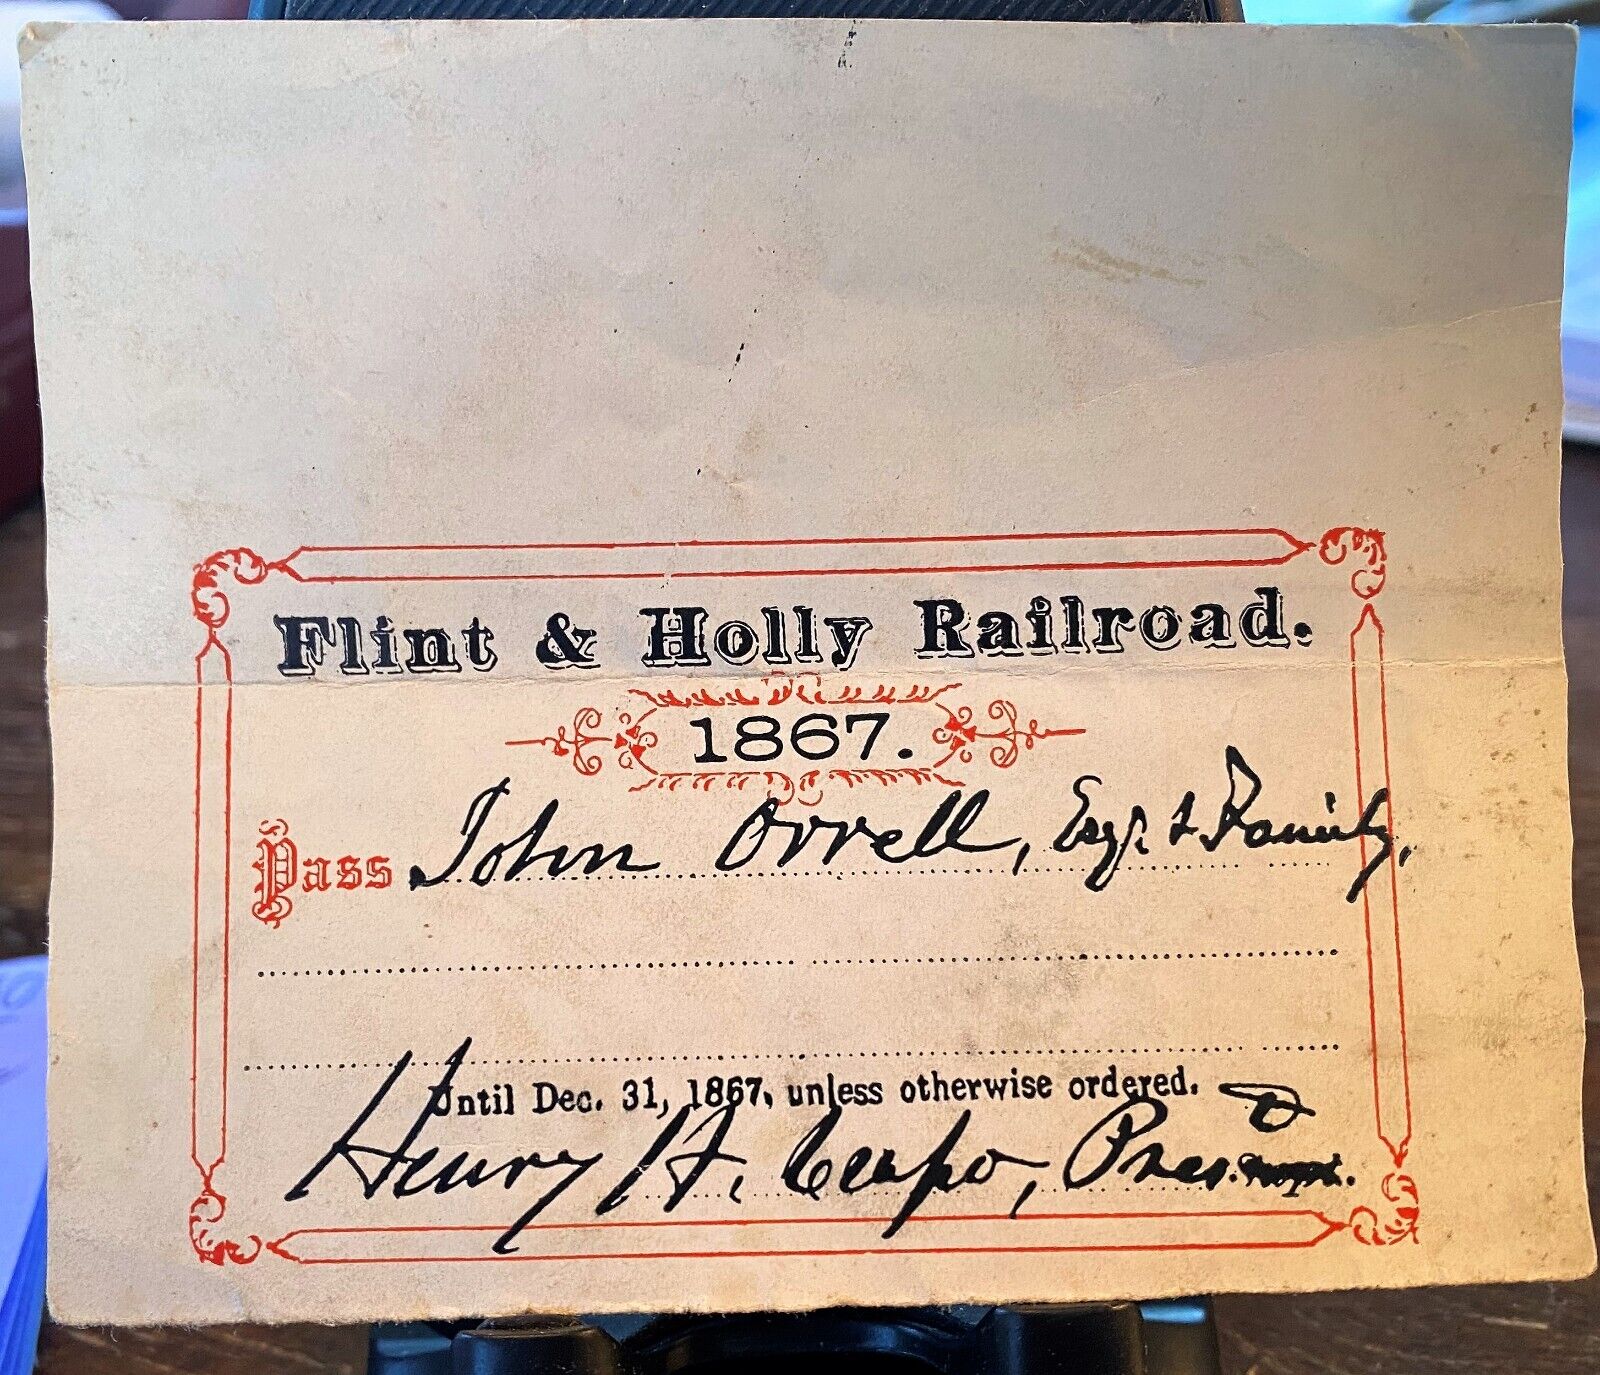 Flint & Holly Railroad.
1867.
Pass John Orrell, Esq. & Family,
Until Dec. 31, 1867, unless otherwise ordered.
Henry H. Crapo, Pres.